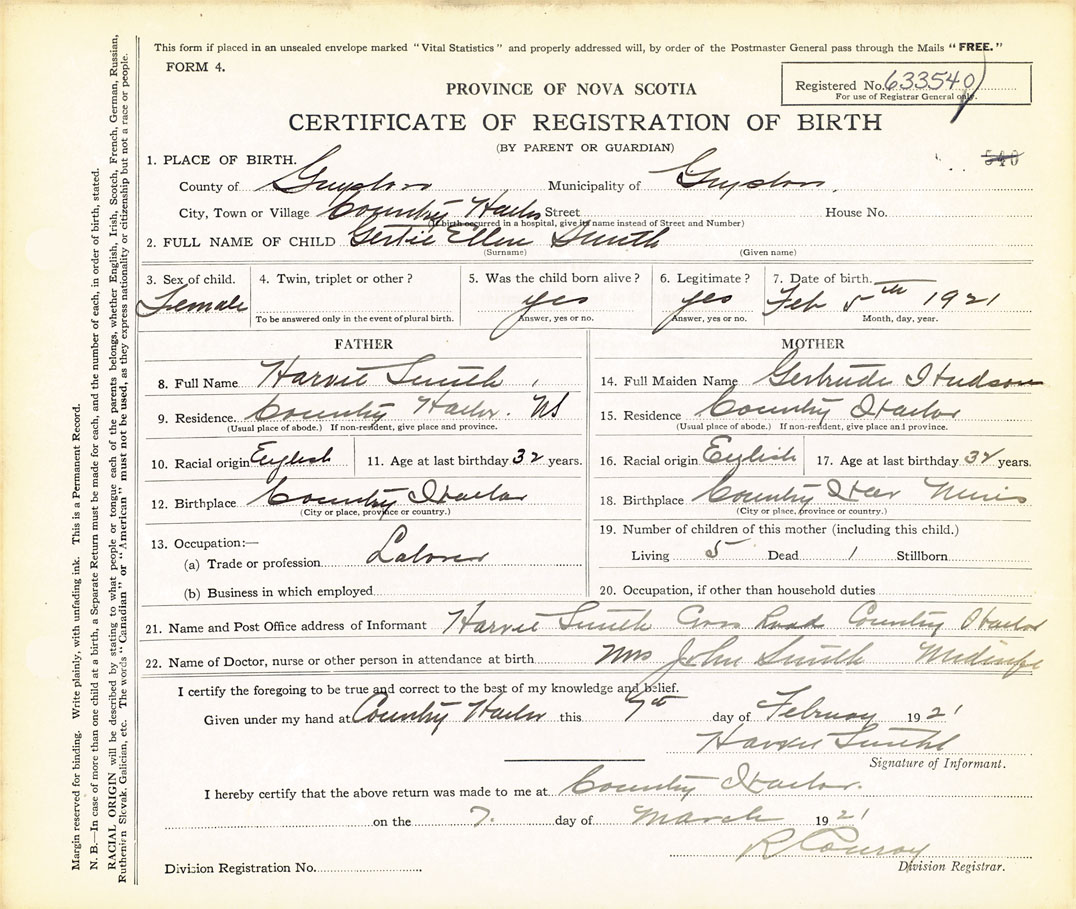 This form if placed in an unsealed envelope marked "Vital Statistics" and properly addressed will, by order of the Postmaster General pass through the Mails "FREE."
FORM 4.
Registered No. 633540
For use of Registrar General only.
PROVINCE OF NOVA SCOTIA
CERTIFICATE OF REGISTRATION OF BIRTH
(BY PARENT OR GUARDIAN)
540
1. PLACE OF BIRTH.
County of Guysboro Municipality of Guysboro
City, Town or Village Country Harbor Street House No.
(If birth occurred in a hospital, give its name instead of Street and Number)
2. FULL NAME OF CHILD Gertie Ellen Smith
(Surname) (Given name)
3. Sex of child. 4. Twin, triplet or other? 5. Was the child born alive? 6. Legitimate? 7. Date of birth.
Female yes yes Feb 5th 1921
To be answered only in the event of plural birth. Answer, yes or no. Answer, yes or no. Month, day, year.
FATHER
8. Full Name Harvie Smith
9. Residence. Country Harbor. NS
(Usual place of abode.) If non-resident, give place and province.
10. Racial origin English 11. Age at last birthday 32 years.
12. Birthplace Country Harbor
(City or place, province or country.)
13. Occupation:—
(a) Trade or profession Laborer
(b) Business in which employed
MOTHER
14. Full Maiden Name Gertrude Hudson
15. Residence Country Harbor
(Usual place of abode.) If non-resident, give place and province.
16. Racial origin English 17. Age at last birthday years.
18. Birthplace Country Har
(City or place, province or country.)
19. Number of children of this mother (including this child.)
Living 5 Dead 1 Stillborn
20. Occupation, if other than household duties
21. Name and Post Office address of Informant Harvie Smith Cross Road Country Harbor
22. Name of Doctor, nurse or other person in attendance at birth Mrs John Smith
I certify the foregoing to be true and correct to the best of my knowledge and belief.
Given under my hand at Country Harbor this 7th day of February 1921
Harvie Smith
Signature of Informant.
I hereby certify that the above return was made to me at Country Harbor.
on the 7. day of March 1921
R Conroy
Division Registrar.
Division Registration No.
Margin reserved for binding. Write plainly, with unfading ink. This is a Permanent Record.
N. B.—In case of more than one child at a birth, a Separate Return must be made for each, and the number of each, in order of birth, stated.
RACIAL ORIGIN will be described by stating to what people or tongue each of the parents belongs, whether English, Irish, Scotch, French, German, Russian,
Ruthenian Slovak, Galician, etc. The words "Canadian" or "American" must not be used, as they express nationality or citizenship but not a race or people.